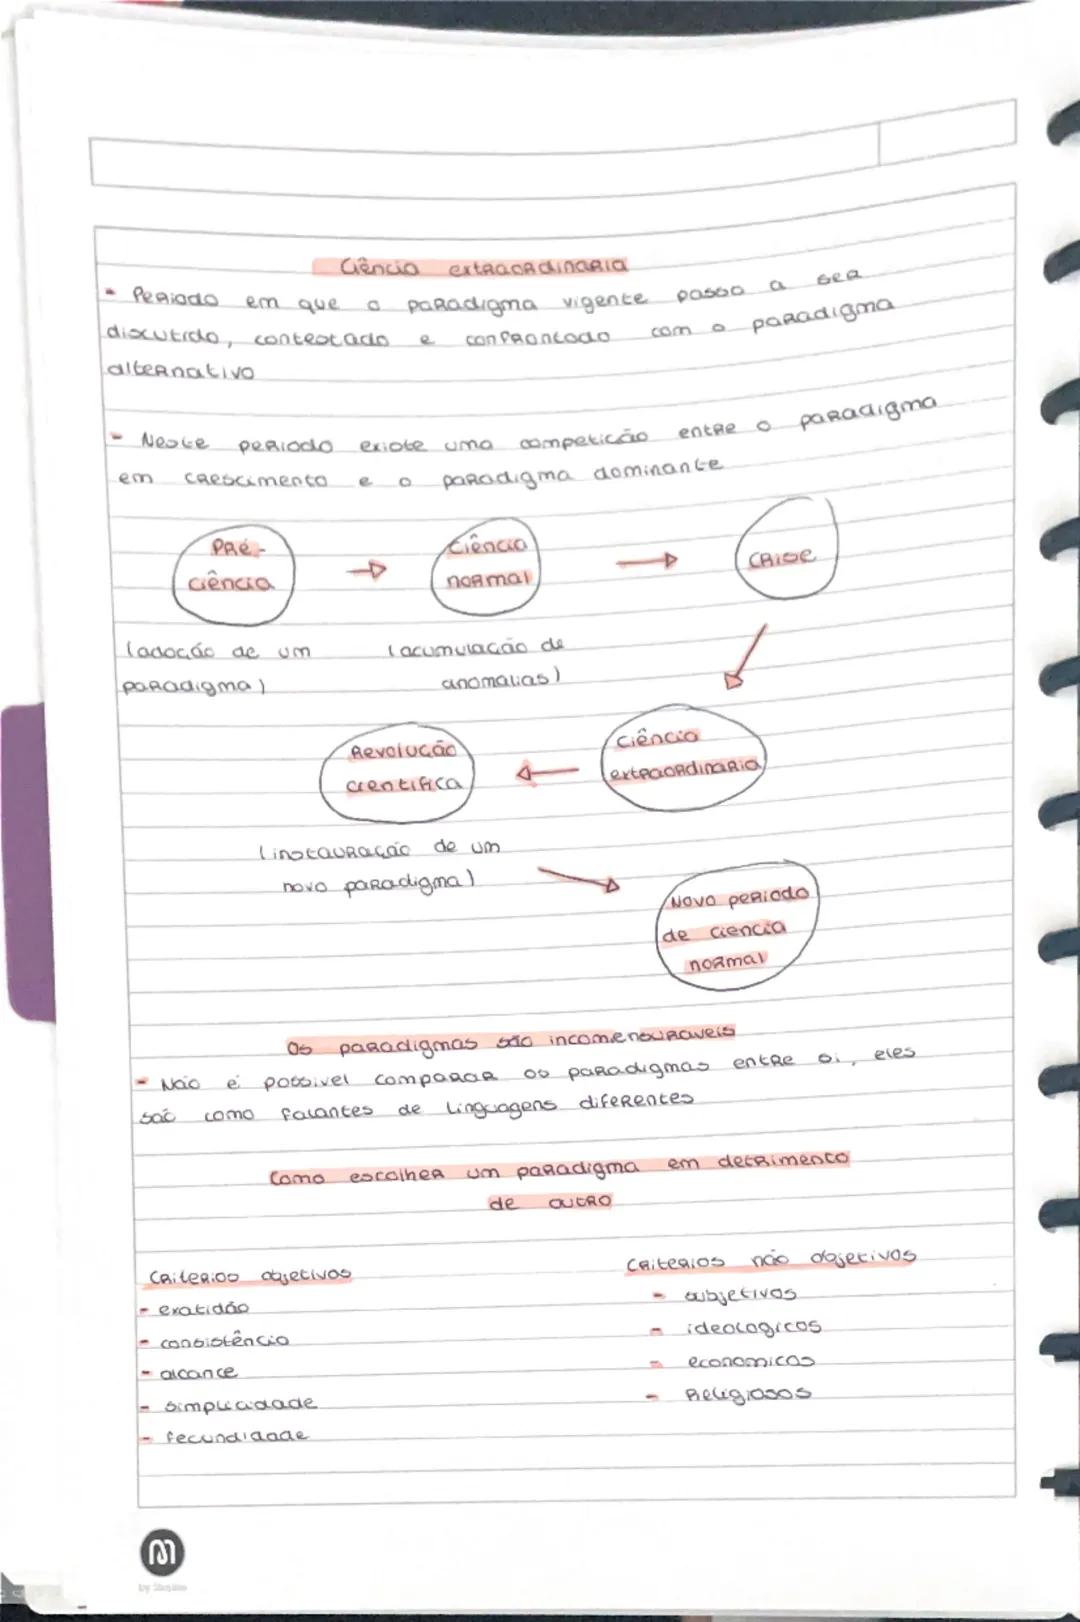 Ciência extraordinaria
- Periodo em que o paradigma vigente passa a ser
discutido, contestado e confrontado com o paradigma
alternativo
- Neste periodo existe uma competicão entre o paradigma
em crescimento e o paradigma dominante
Pré-
ciência
Ciência
normal
Crise
(adoção de um
paradigma)
(acumulação de
anomalias)
Revolução
cientifica
Ciência
extraordinaria
(instauração de um
novo paradigma)
Novo periodo
de ciencia
normal
Os paradigmas são incomensuraveis
- Não é possivel comparar os paradigmas entre si, eles
são como falantes de linguagens diferentes
Como escolher um paradigma em detrimento
de outro
Criterios objetivos
- exatidão
- consistência
- alcance
- simplicidade
- fecundidade
Criterios não objetivos
- subjetivos
- ideologicos
- economicos
- Religiosos